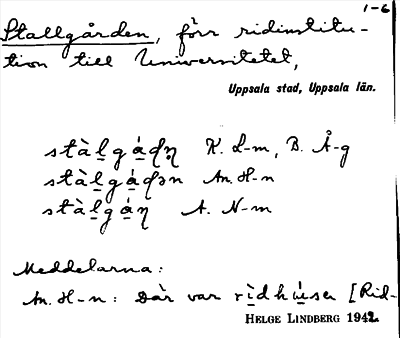 1-6
Stallgården, förr ridinstitu-
tion till Universitetet,
Uppsala stad, Uppsala län.
stàlgáɖn̥ K. L-m, B. Å-g
stàlgáɖən An. H-n
stàlgáɳ A. N-m
Meddelarna:
An. H-n: Dàr var rìdhúsən [Rid-
HELGE LINDBERG 1942.